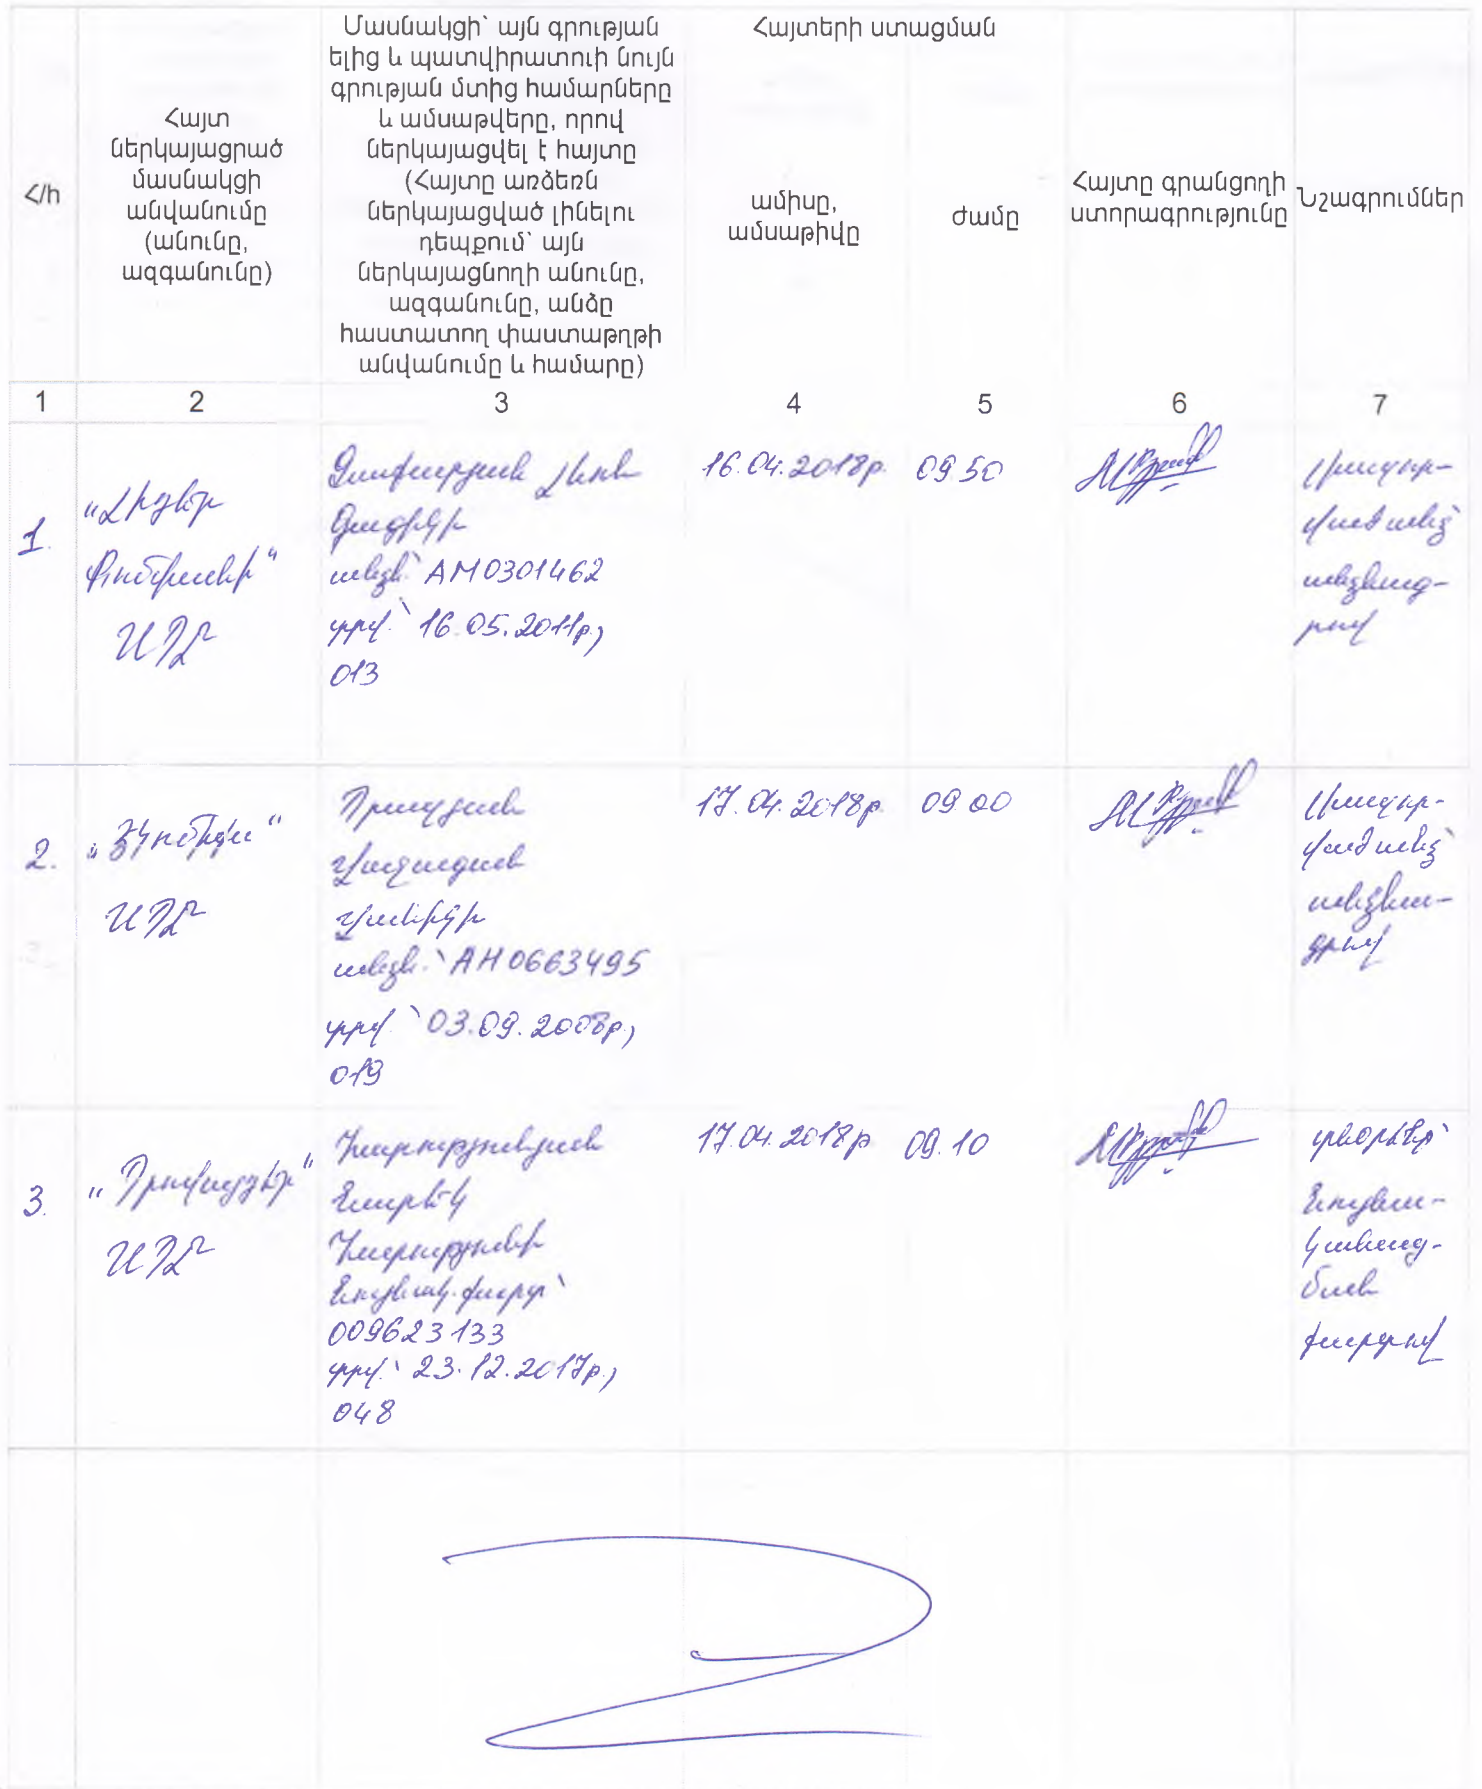 Հ/հ
Հայտ
ներկայացրած
մասնակցի
անվանումը
(անունը,
ազգանունը)
Մասնակցի՝ այն գրության
ելից և պատվիրատուի նույն
գրության մտից համարները
և ամսաթվերը, որով
ներկայացվել է հայտը
(Հայտը առձեռն
ներկայացված լինելու
դեպքում՝ այն
ներկայացնողի անունը,
ազգանունը, անձը
հաստատող փաստաթղթի
անվանումը և համարը)
Հայտերի ստացման
ամիսը,
ամսաթիվը
ժամը
Հայտը գրանցողի
ստորագրությունը
Նշագրումներ
1 2 3 4 5 6 7
1.
"Լիդեր
Քոմփանի"
ՍՊԸ
Գասպարյան Լևոն
Գագիկի
անձն.՝ AM0301462
տրվ.՝ 16.05.2011թ.,
013
16.04.2018թ.
09.50
անձնագ-
րով
2.
"Էկոմիքս"
ՍՊԸ
անձն.՝ AH0663495
տրվ.՝ 03.09.2008թ.,
019
17.04.2018թ.
09.00
անձնա-
գրով
3.
"Պրովայդեր"
ՍՊԸ
Հարությունյան
Նարեկ
Հարությունի
նույնակ. քարտ՝
009623133
տրվ.՝ 23.12.2017թ.,
048
17.04.2018թ
09.10
տնօրենը՝
նույնա-
կանաց-
ման
քարտով